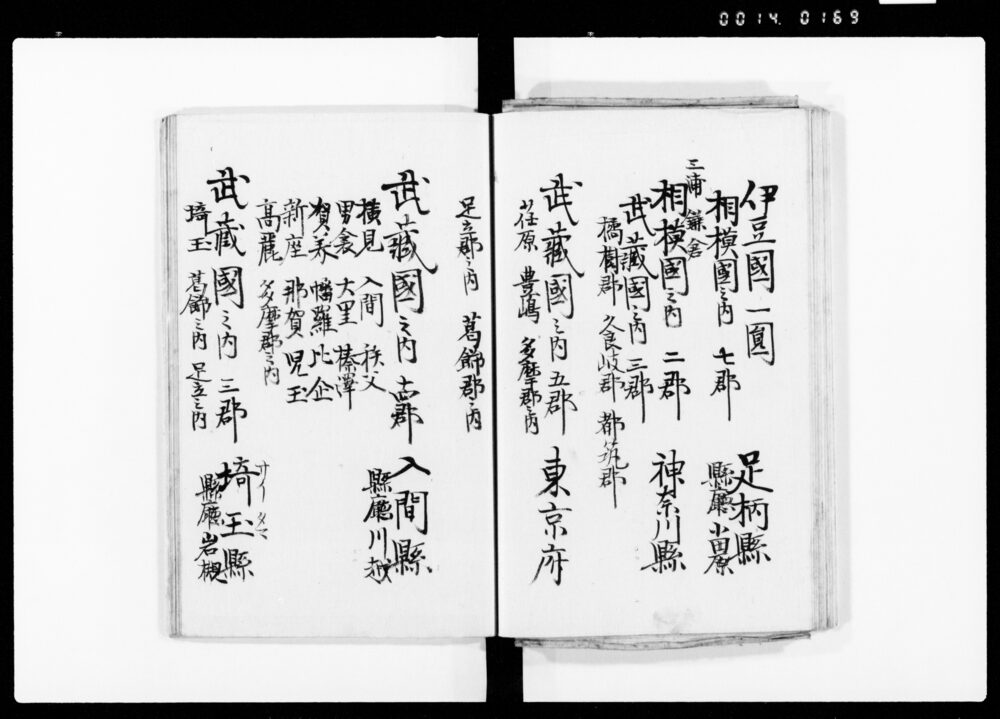 0014.0169
伊豆國一圓
相模國之内 七郡 足柄縣
縣廳小田原
三浦 鎌倉
相模國之内 二郡 神奈川縣
武藏國之内 三郡
橘樹郡 久良岐郡 都筑郡
武藏國之内 五郡 東京府
荏原 豊嶋 多摩郡之内
足立郡之内 葛飾郡之内
武藏國之内 十四郡 入間縣
縣廳川越
横見 入間 秩父
男衾 大里 榛澤
賀美 幡羅 比企
新座 那賀 児玉
高麗 多摩郡之内
武藏國之内 三郡 埼玉縣
サイタマ
縣廳岩槻
埼玉 葛飾之内 足立之内